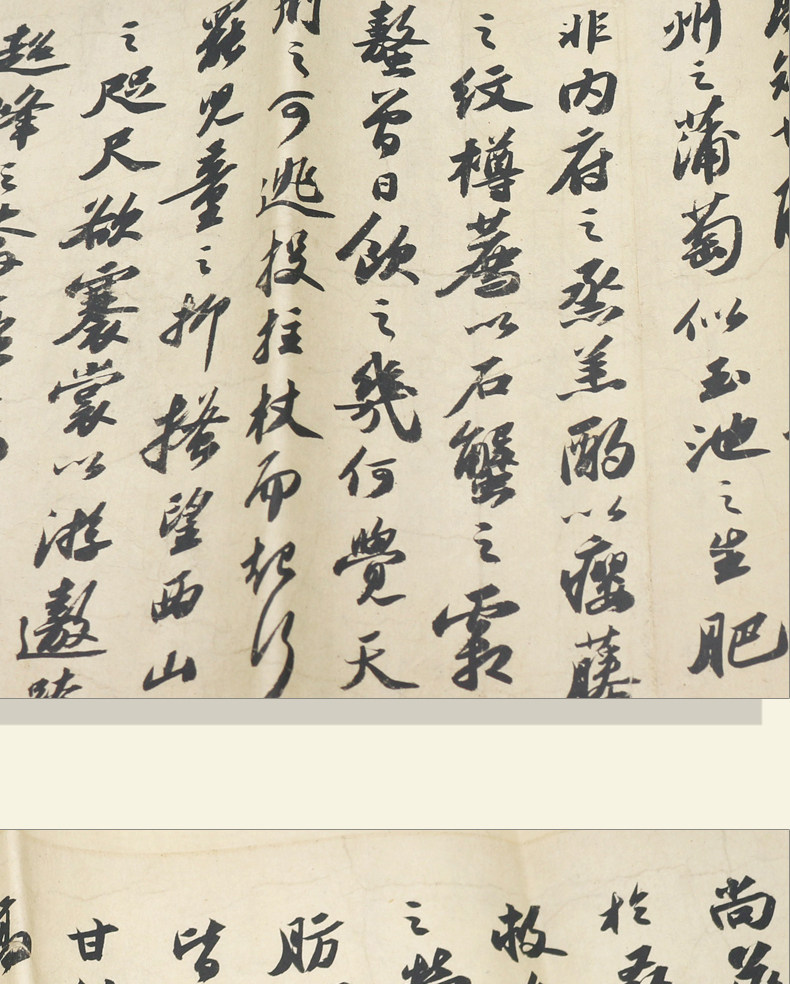 州之蒲萄似玉池之生肥
非内府之烝羔酌以癭藤
之紋樽薦以石蟹之霜
螯曾日飲之幾何覺天
刑之可逃投拄杖而起行
罷兒童之抑搔望西山
之咫尺欲褰裳以游遨跨
超峰之奔
尚
於桑
救
之螢
肪
皆
甘